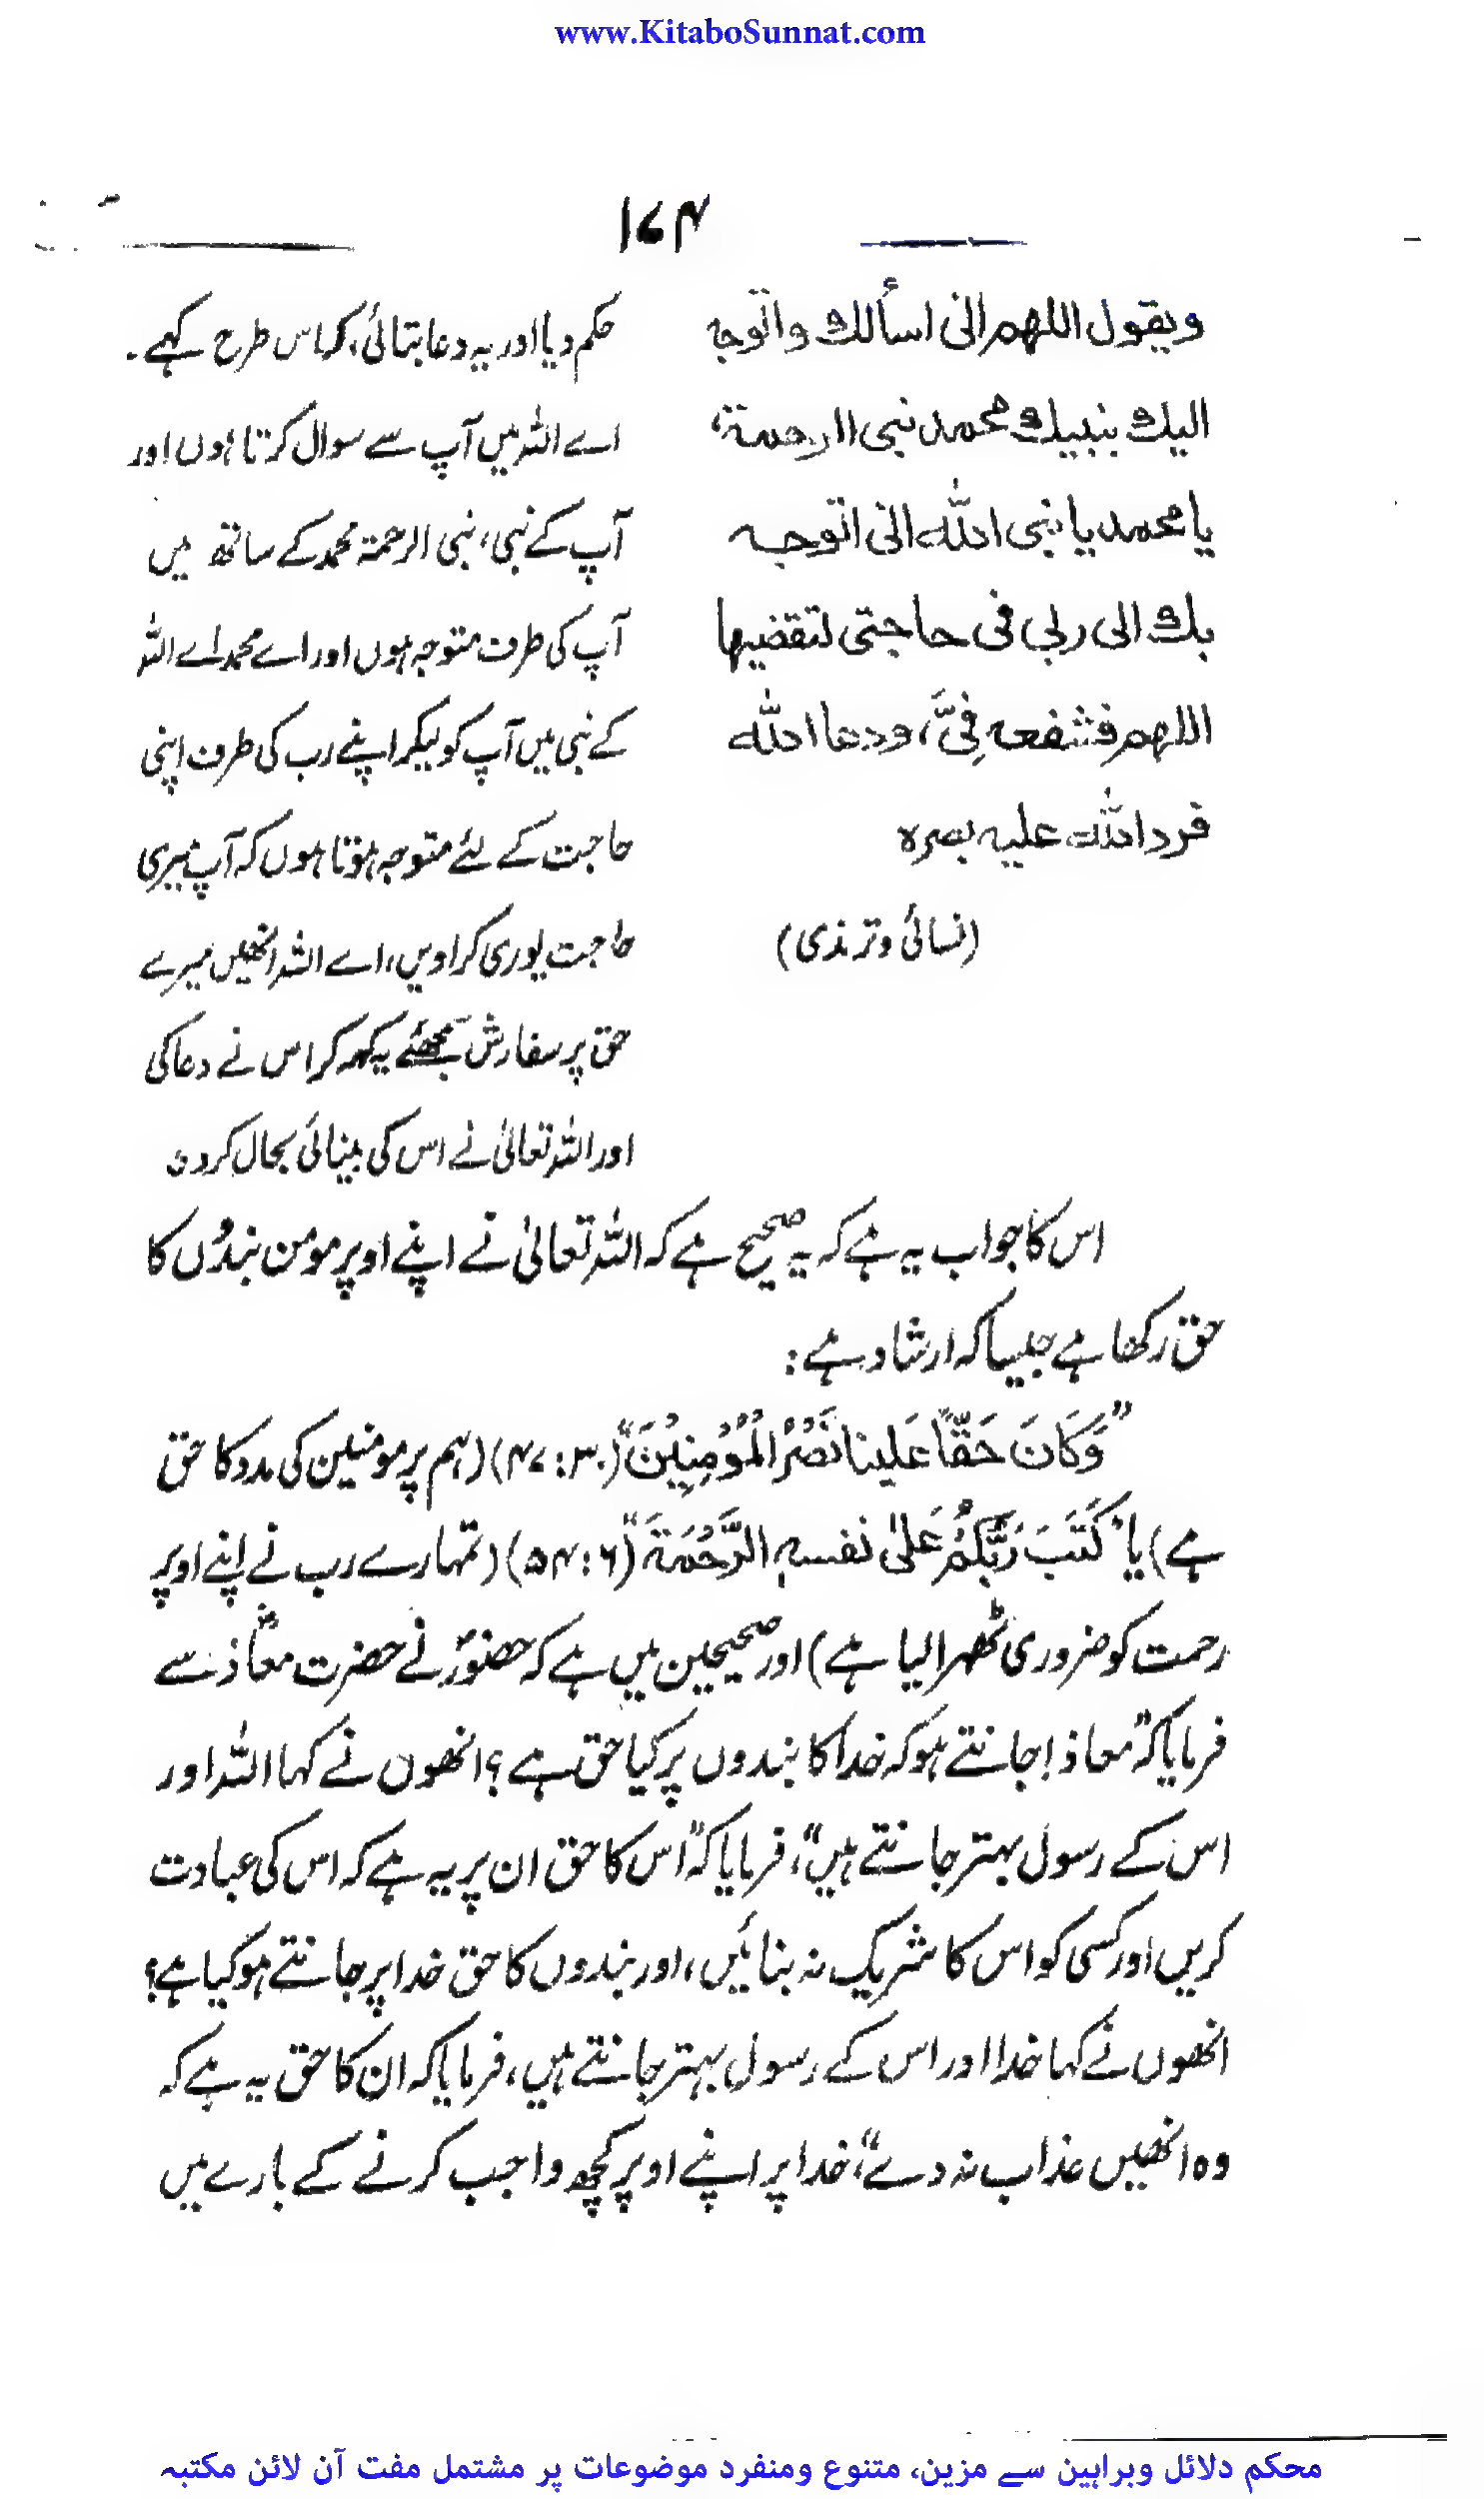 www.KitaboSunnat.com
۱۷۴
ويقول اللهم انی اسألك واتوجه
اليك بنبيك محمد نبی الرحمة،
يا محمد يا نبی الله انی اتوجه
بك الی ربی فی حاجتی لتقضيها
اللهم فشفعه فِیَّ، ودعا الله
فرد الله عليه بصره
(نسائی وترمذی)
حکم دیا اور یہ دعا بتائی، کہ اس طرح کہے۔
اے اللہ میں آپ سے سوال کرتا ہوں اور
آپ کے نبی، نبی الرحمۃ محمد کے ساتھ میں
آپ کی طرف متوجہ ہوں اور اے محمد اے اللہ
کے نبی میں آپ کو لیکر اپنے رب کی طرف اپنی
حاجت کے لئے متوجہ ہوتا ہوں کہ آپ میری
حاجت پوری کرادیں، اے اللہ انھیں میرے
حق پر سفارش یہ کہہ کر اس نے دعا کی
اور اللہ تعالیٰ نے اس کی بینائی بحال کردی
اس کا جواب یہ ہے کہ یہ صحیح ہے کہ اللہ تعالیٰ نے اپنے اوپر مومن بندوں کا
حق رکھا ہے جیسا کہ ارشاد ہے:
"وَكَانَ حَقّاً عَلينا نَصْرُ الْمُؤْمِنِيْنَ" (۳۰:۴۷) (ہم پر مومنین کی مدد کا حق
ہے) یا "كَتَبَ رَبُّكُمْ عَلیٰ نفسهِ الرَّحْمَةَ" (۶:۵۴) (تمہارے رب نے اپنے اوپر
رحمت کو ضروری ٹھہرالیا ہے) اور صحیحین میں ہے کہ حضورؐ نے حضرت معاذؓ سے
فرمایا کہ "معاذ! جانتے ہو کہ خدا کا بندوں پر کیا حق ہے؟ انھوں نے کہا اللہ اور
اس کے رسول بہتر جانتے ہیں"، فرمایا کہ "اس کا حق ان پر یہ ہے کہ اس کی عبادت
کریں اور کسی کو اس کا شریک نہ بنائیں، اور بندوں کا حق خدا پر جانتے ہو کیا ہے؟
انھوں نے کہا خدا اور اس کے رسول بہتر جانتے ہیں، فرمایا کہ ان کا حق یہ ہے کہ
وہ انھیں عذاب نہ دے"، خدا پر اپنے اوپر کچھ واجب کرنے کے بارے میں
محکم دلائل وبراہین سے مزین، متنوع ومنفرد موضوعات پر مشتمل مفت آن لائن مکتبہ